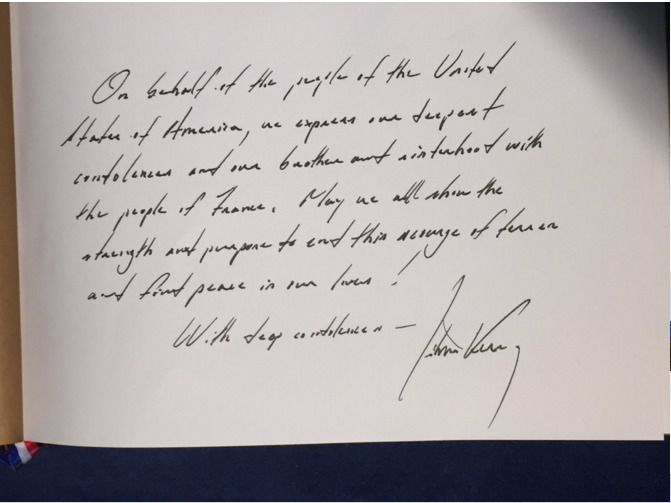 On behalf of the people of the United
States of America, we express our deepest
condolences and our brother and sisterhood with
the people of France. May we all show the
strength and purpose to end this scourge of terror
and find peace in our lives!
With deep condolences —